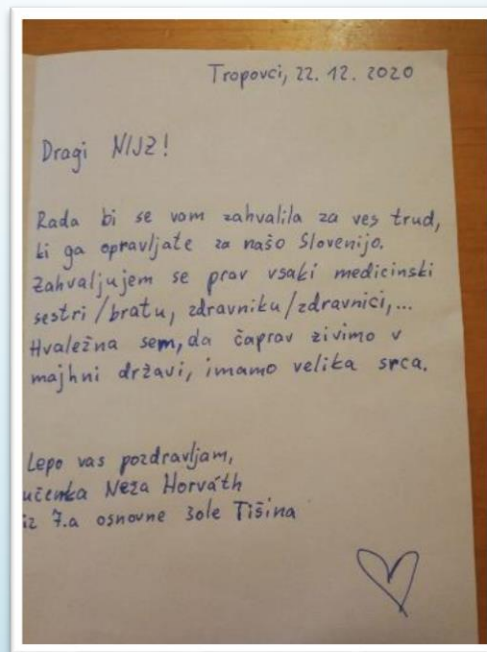 Tropovci, 22. 12. 2020
Dragi NIJZ!
Rada bi se vam zahvalila za ves trud,
ki ga opravljate za našo Slovenijo.
Zahvaljujem se prav vsaki medicinski
sestri/bratu, zdravniku/zdravnici,...
Hvaležna sem, da čaprav živimo v
majhni državi, imamo velika srca.
Lepo vas pozdravljam,
učenka Neža Horváth
iz 7.a osnovne šole Tišina